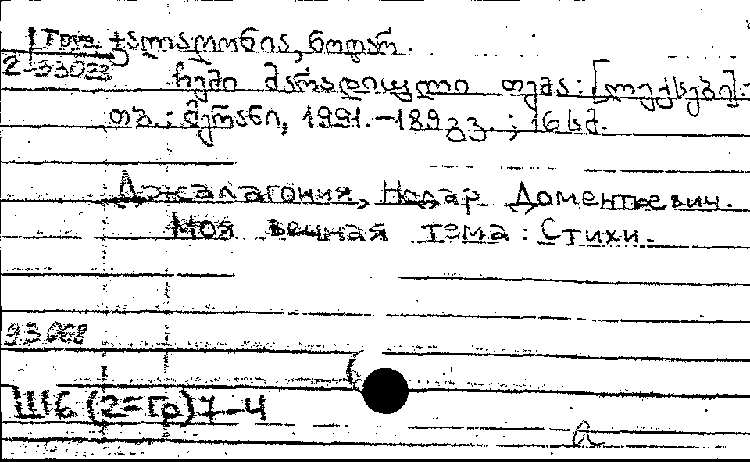 1 Грз ჯალაღონია, ნოდარ.
2-33023 ჩემი მარადიული თემა: [ლექსები].-
თბ.: მერანი, 1991.-189გვ.; 16სმ.
Джалагония, Нодар Доментьевич.
Моя вечная тема: Стихи.
93068
Ш6 (2=Гр)7-4